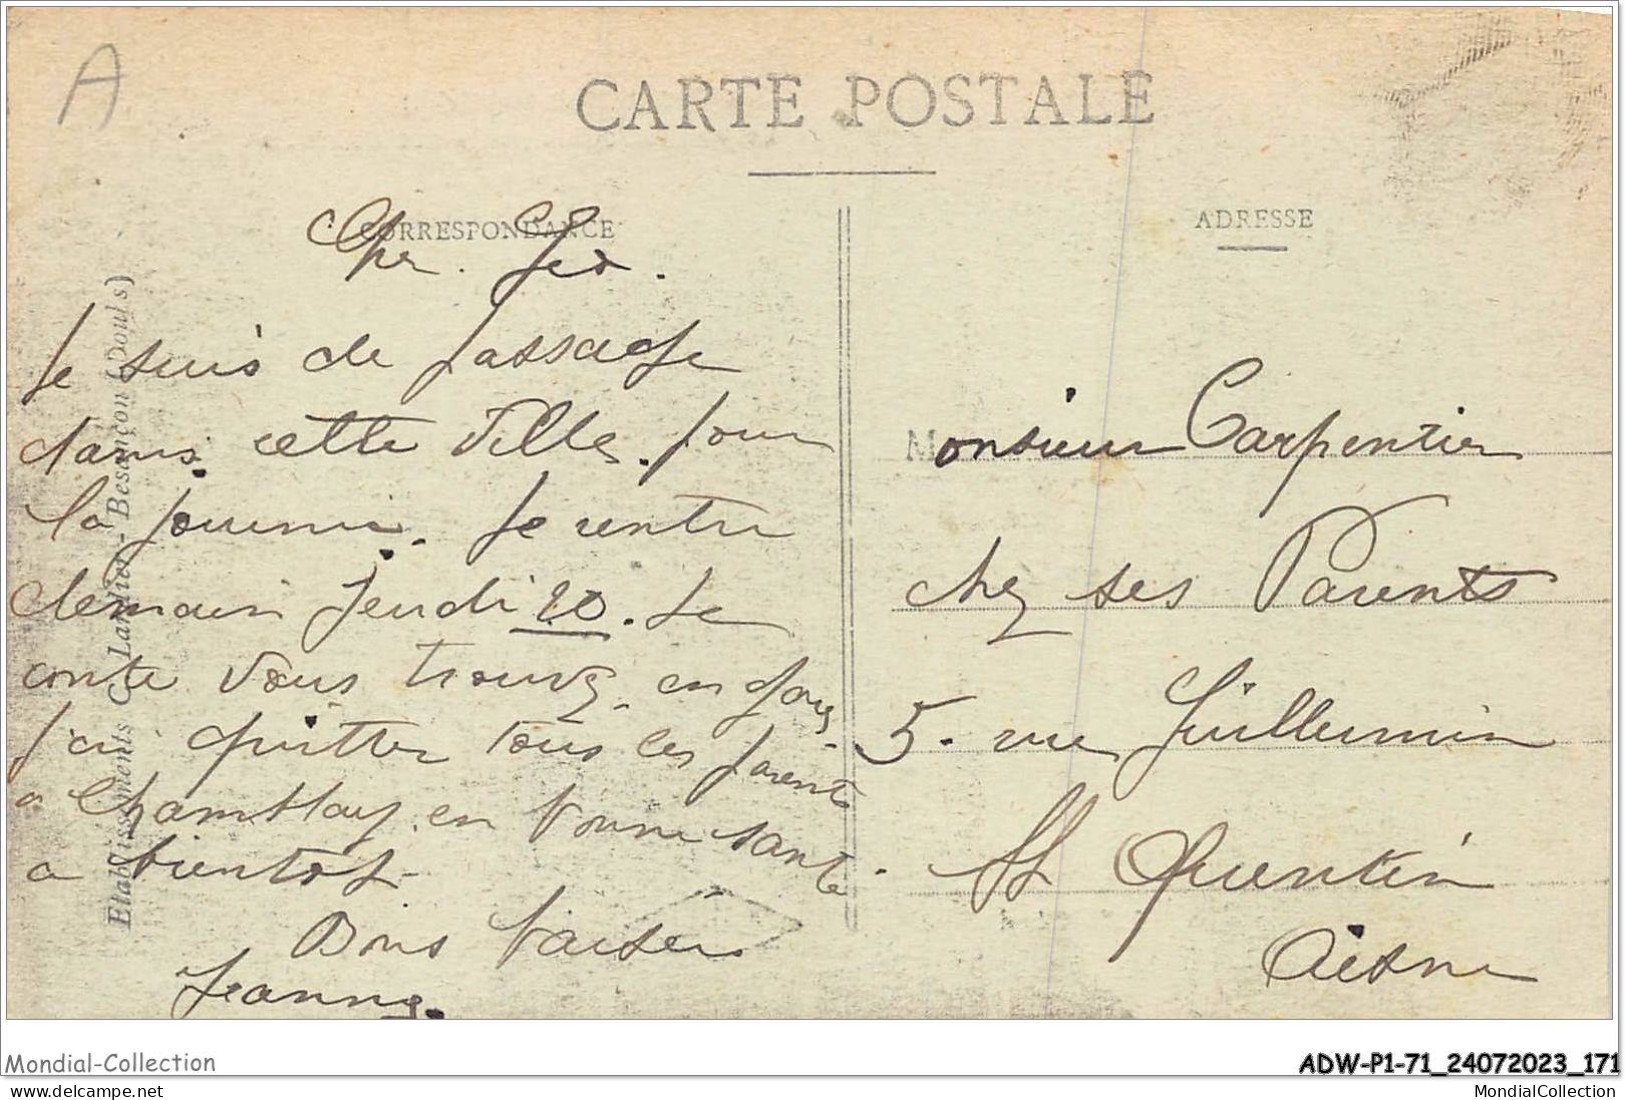 A
CARTE POSTALE
CORRESPONDANCE
ADRESSE
Cher Géo.
Je suis de passage
dans cette Ville. pour
la journée. Je rentre
demain Jeudi 20. Je
conte vous trouvé en
j'ai quitter tous les parents
a Chamblay en bonne santé
a bientot
Bons baisers
Jeanne.
Monsieur Carpentier
chez ses Parents
5. rue Guillermin
St Quentin
Aisne
Etablissements C. Lardier - Besançon (Doubs)
Mondial-Collection
ADW-P1-71_24072023_171
MondialCollection